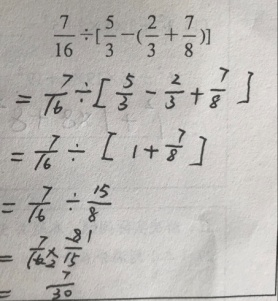 7/16 ÷ [5/3 − (2/3 + 7/8)]
= 7/16 ÷ [5/3 − 2/3 + 7/8]
= 7/16 ÷ [1 + 7/8]
= 7/16 ÷ 15/8
= 7/16 2 × 8 1/15
= 7/30